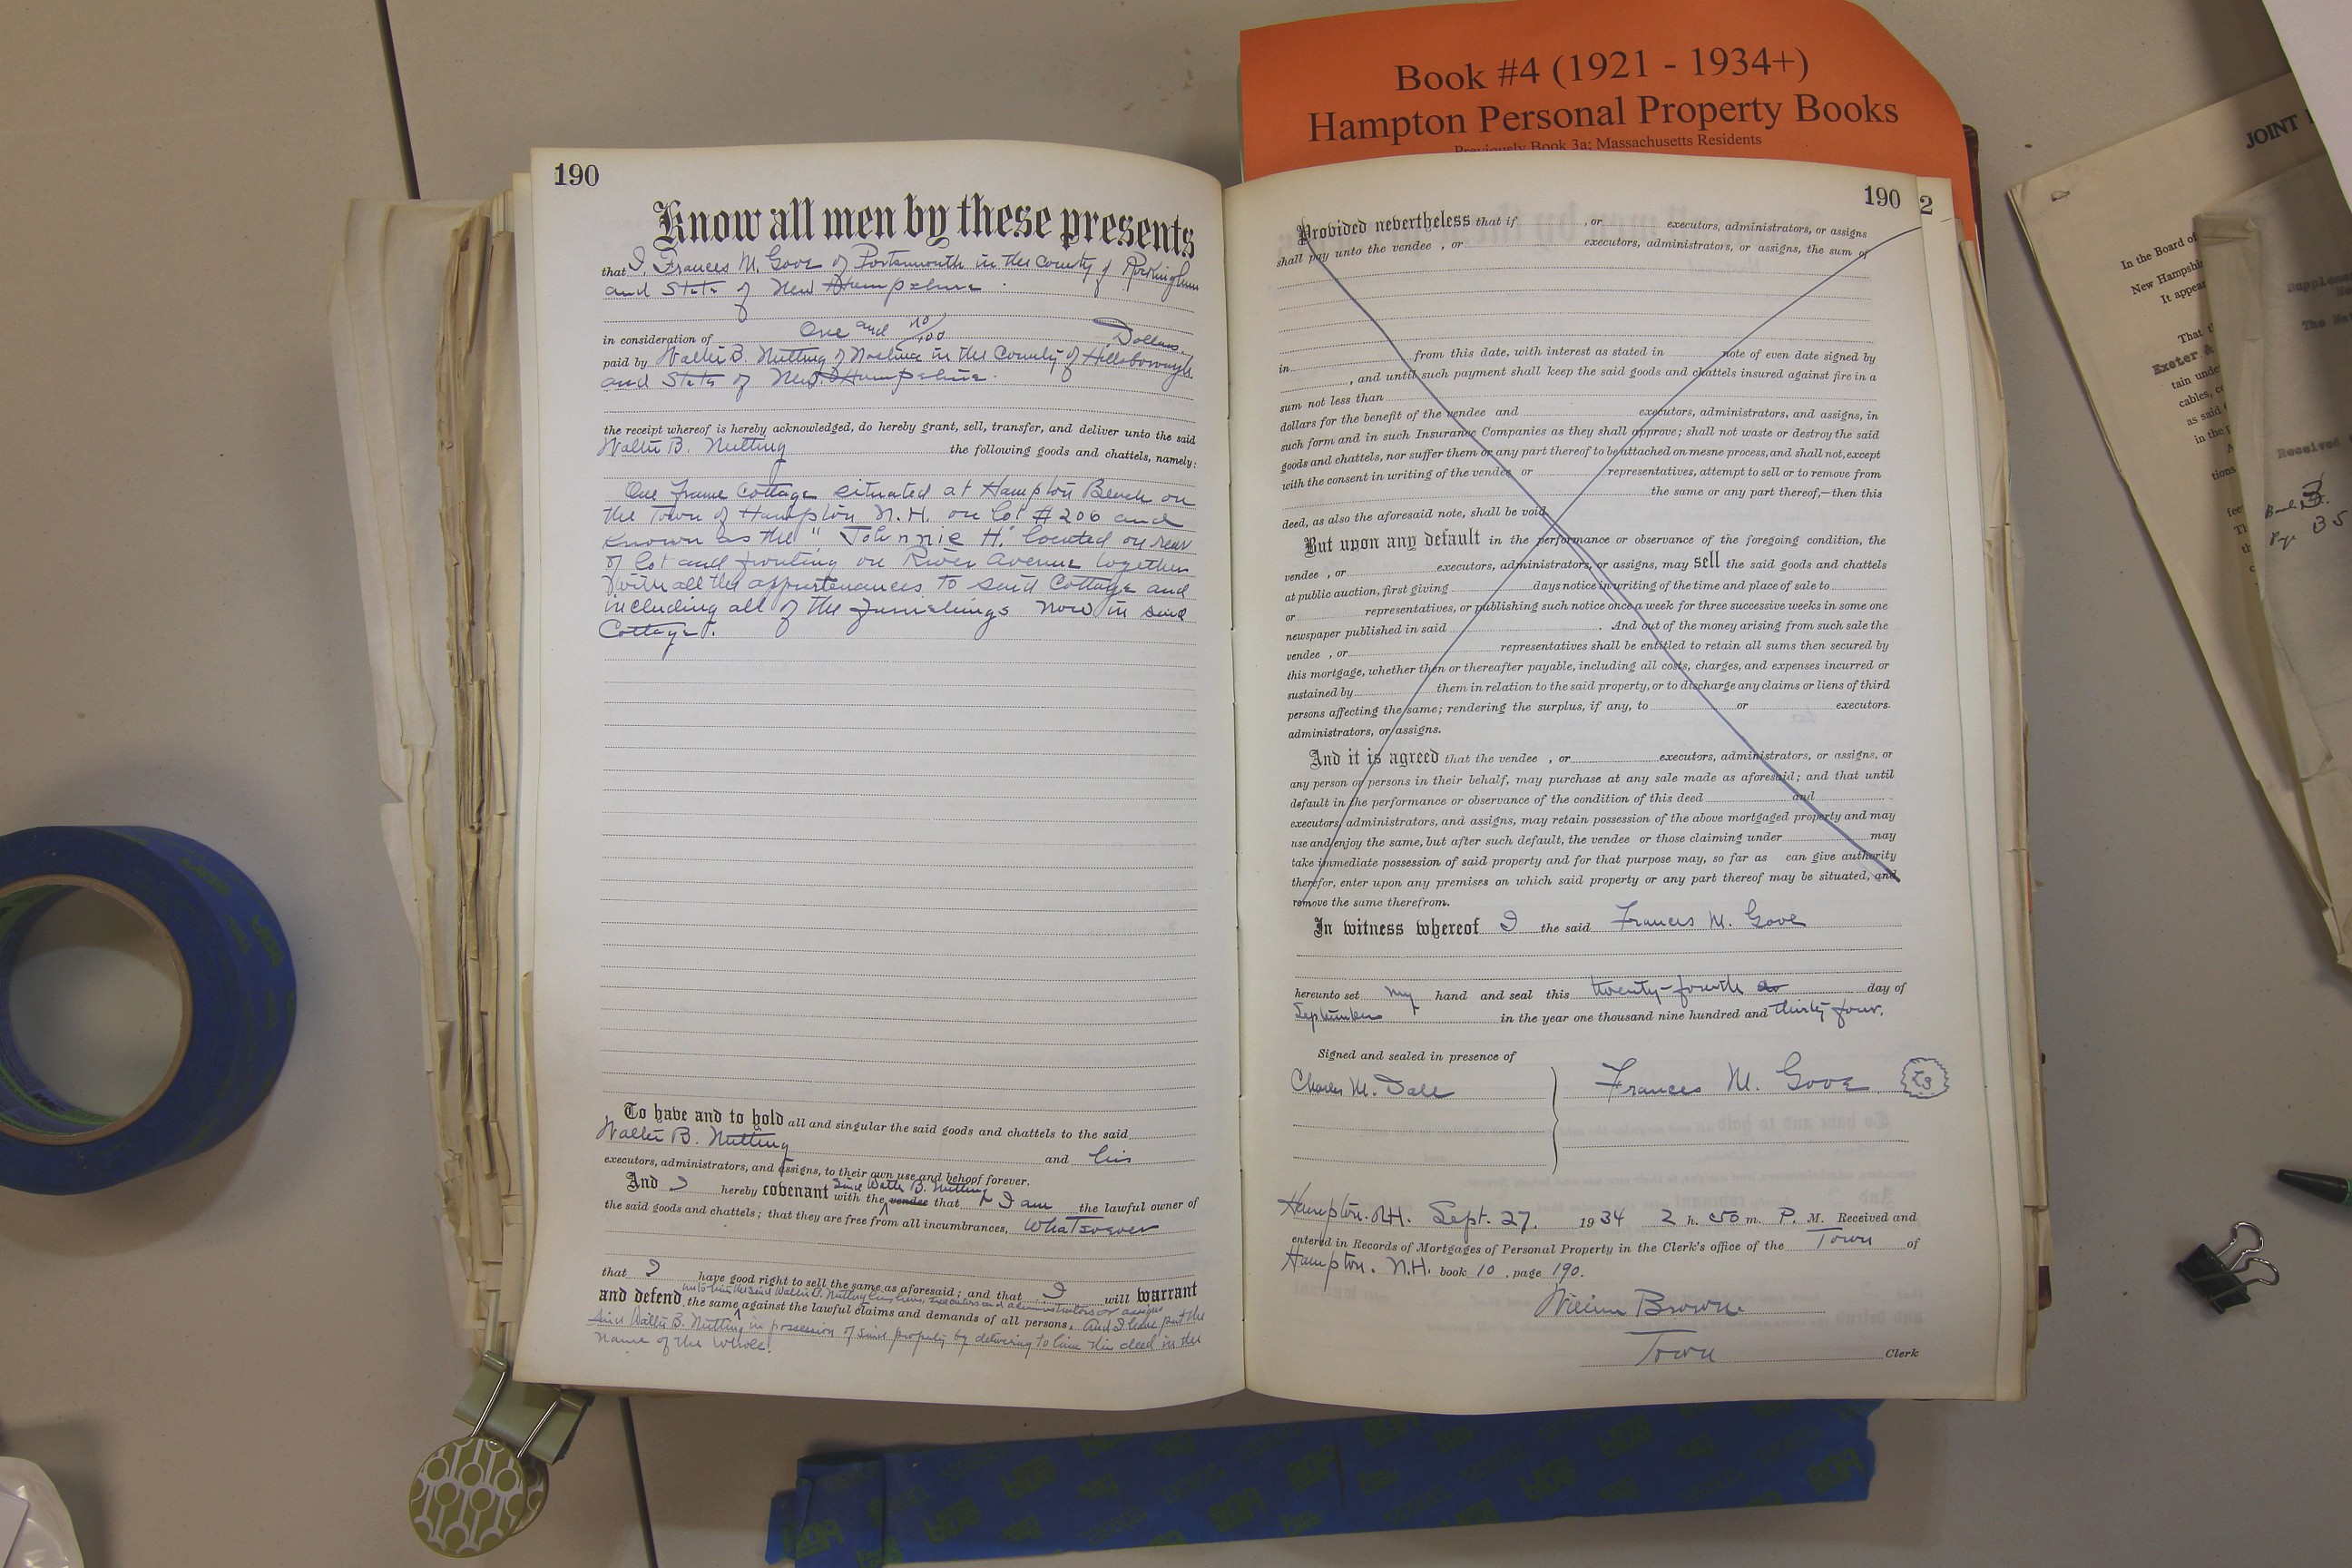 Book #4 (1921 - 1934+)
Hampton Personal Property Books
Previously Book 3a: Massachusetts Residents
190
Know all men by these presents
that I, Frances M. Gove of Portsmouth in the County of Rockingham
and State of New Hampshire
in consideration of One and no/100 Dollars.
paid by Walter B. Nutting of Nashua in the County of Hillsborough
and State of New Hampshire.
the receipt whereof is hereby acknowledged, do hereby grant, sell, transfer, and deliver unto the said
Walter B. Nutting the following goods and chattels, namely:
One frame Cottage situated at Hampton Beach on
the Town of Hampton N.H. on lot #206 and
known as the "Johnnie H." located on rear
of lot and fronting on River Avenue together
with all the appurtenances to said Cottage and
including all of the furnishings now in said
Cottage.
To have and to hold all and singular the said goods and chattels to the said
Walter B. Nutting and his
executors, administrators, and assigns, to their own use and behoof forever.
said Walter B. Nutting
And I hereby covenant with the vendee that I am the lawful owner of
the said goods and chattels; that they are free from all incumbrances, whatsoever
that I have good right to sell the same as aforesaid; and that I will warrant
unto him the said Walter B. Nutting his heirs, executors and administrators or assigns
and defend the same against the lawful claims and demands of all persons. And I have put the
said Walter B. Nutting in possession of said property by delivering to him this deed in the
name of the whole.
190
2
Provided nevertheless that if , or executors, administrators, or assigns
shall pay unto the vendee , or executors, administrators, or assigns, the sum of
in from this date, with interest as stated in note of even date signed by
, and until such payment shall keep the said goods and chattels insured against fire in a
sum not less than
dollars for the benefit of the vendee and executors, administrators, and assigns, in
such form and in such Insurance Companies as they shall approve; shall not waste or destroy the said
goods and chattels, nor suffer them or any part thereof to be attached on mesne process, and shall not, except
with the consent in writing of the vendee or representatives, attempt to sell or to remove from
the same or any part thereof,—then this
deed, as also the aforesaid note, shall be void.
But upon any default in the performance or observance of the foregoing condition, the
vendee , or executors, administrators, or assigns, may sell the said goods and chattels
at public auction, first giving days notice in writing of the time and place of sale to
or representatives, or publishing such notice once a week for three successive weeks in some one
newspaper published in said . And out of the money arising from such sale the
vendee , or representatives shall be entitled to retain all sums then secured by
this mortgage, whether then or thereafter payable, including all costs, charges, and expenses incurred or
sustained by them in relation to the said property, or to discharge any claims or liens of third
persons affecting the same; rendering the surplus, if any, to or executors
administrators, or assigns.
And it is agreed that the vendee , or executors, administrators, or assigns, or
any person or persons in their behalf, may purchase at any sale made as aforesaid; and that until
default in the performance or observance of the condition of this deed and
executors, administrators, and assigns, may retain possession of the above mortgaged property and may
use and enjoy the same, but after such default, the vendee or those claiming under may
take immediate possession of said property and for that purpose may, so far as can give authority
therefor, enter upon any premises on which said property or any part thereof may be situated, and
remove the same therefrom.
In witness whereof I the said Frances M. Gove
hereunto set my hand and seal this twenty-fourth day of
September in the year one thousand nine hundred and thirty four.
Signed and sealed in presence of
Charles M. Dale Frances M. Gove LS
Hampton. N.H. Sept. 27. 1934 2 h. 50 m. P. M. Received and
entered in Records of Mortgages of Personal Property in the Clerk's office of the Town of
Hampton. N.H. book 10 , page 190.
William Brown
Town Clerk
JOINT
In the Board of
New Hampshir
It appear
That t
Exeter &
tain unde
cables, c
as said
in the
tions
Supplem
The Nat
Received
Book 3
Page 35